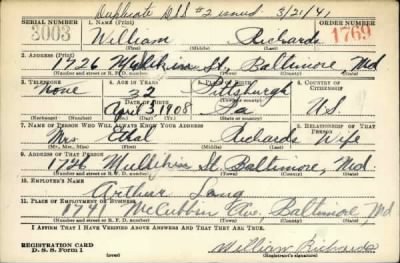 Duplicate DSS #2 issued. 3/21/41
SERIAL NUMBER 1. NAME (Print) ORDER NUMBER
3003 William Richards 1769
(First) (Middle) (Last)
2. ADDRESS (Print)
1726 Mullikin St. Baltimore, Md
(Number and street or R. F. D. number) (Town) (County) (State)
3. TELEPHONE 4. AGE IN YEARS 5. PLACE OF BIRTH 6. COUNTRY OF CITIZENSHIP
None 32 Pittsburgh
DATE OF BIRTH
April 3 1908 Pa U.S.
(Mo.) (Day) (Yr.) (State or country)
7. NAME OF PERSON WHO WILL ALWAYS KNOW YOUR ADDRESS 8. RELATIONSHIP OF THAT PERSON
Mrs. Richards Wife
(Mr., Mrs., Miss) (First) (Middle) (Last)
9. ADDRESS OF THAT PERSON
1726 Mullikin St. Baltimore, Md.
(Number and street or R. F. D. number) (Town) (County) (State)
10. EMPLOYER'S NAME
Arthur
11. PLACE OF EMPLOYMENT OR BUSINESS
1741 McCubbin Ave. Baltimore, Md
(Number and street or R. F. D. number) (Town) (County) (State)
I AFFIRM THAT I HAVE VERIFIED ABOVE ANSWERS AND THAT THEY ARE TRUE.
REGISTRATION CARD
D. S. S. Form 1 William Richards
(over) (Registrant's signature)